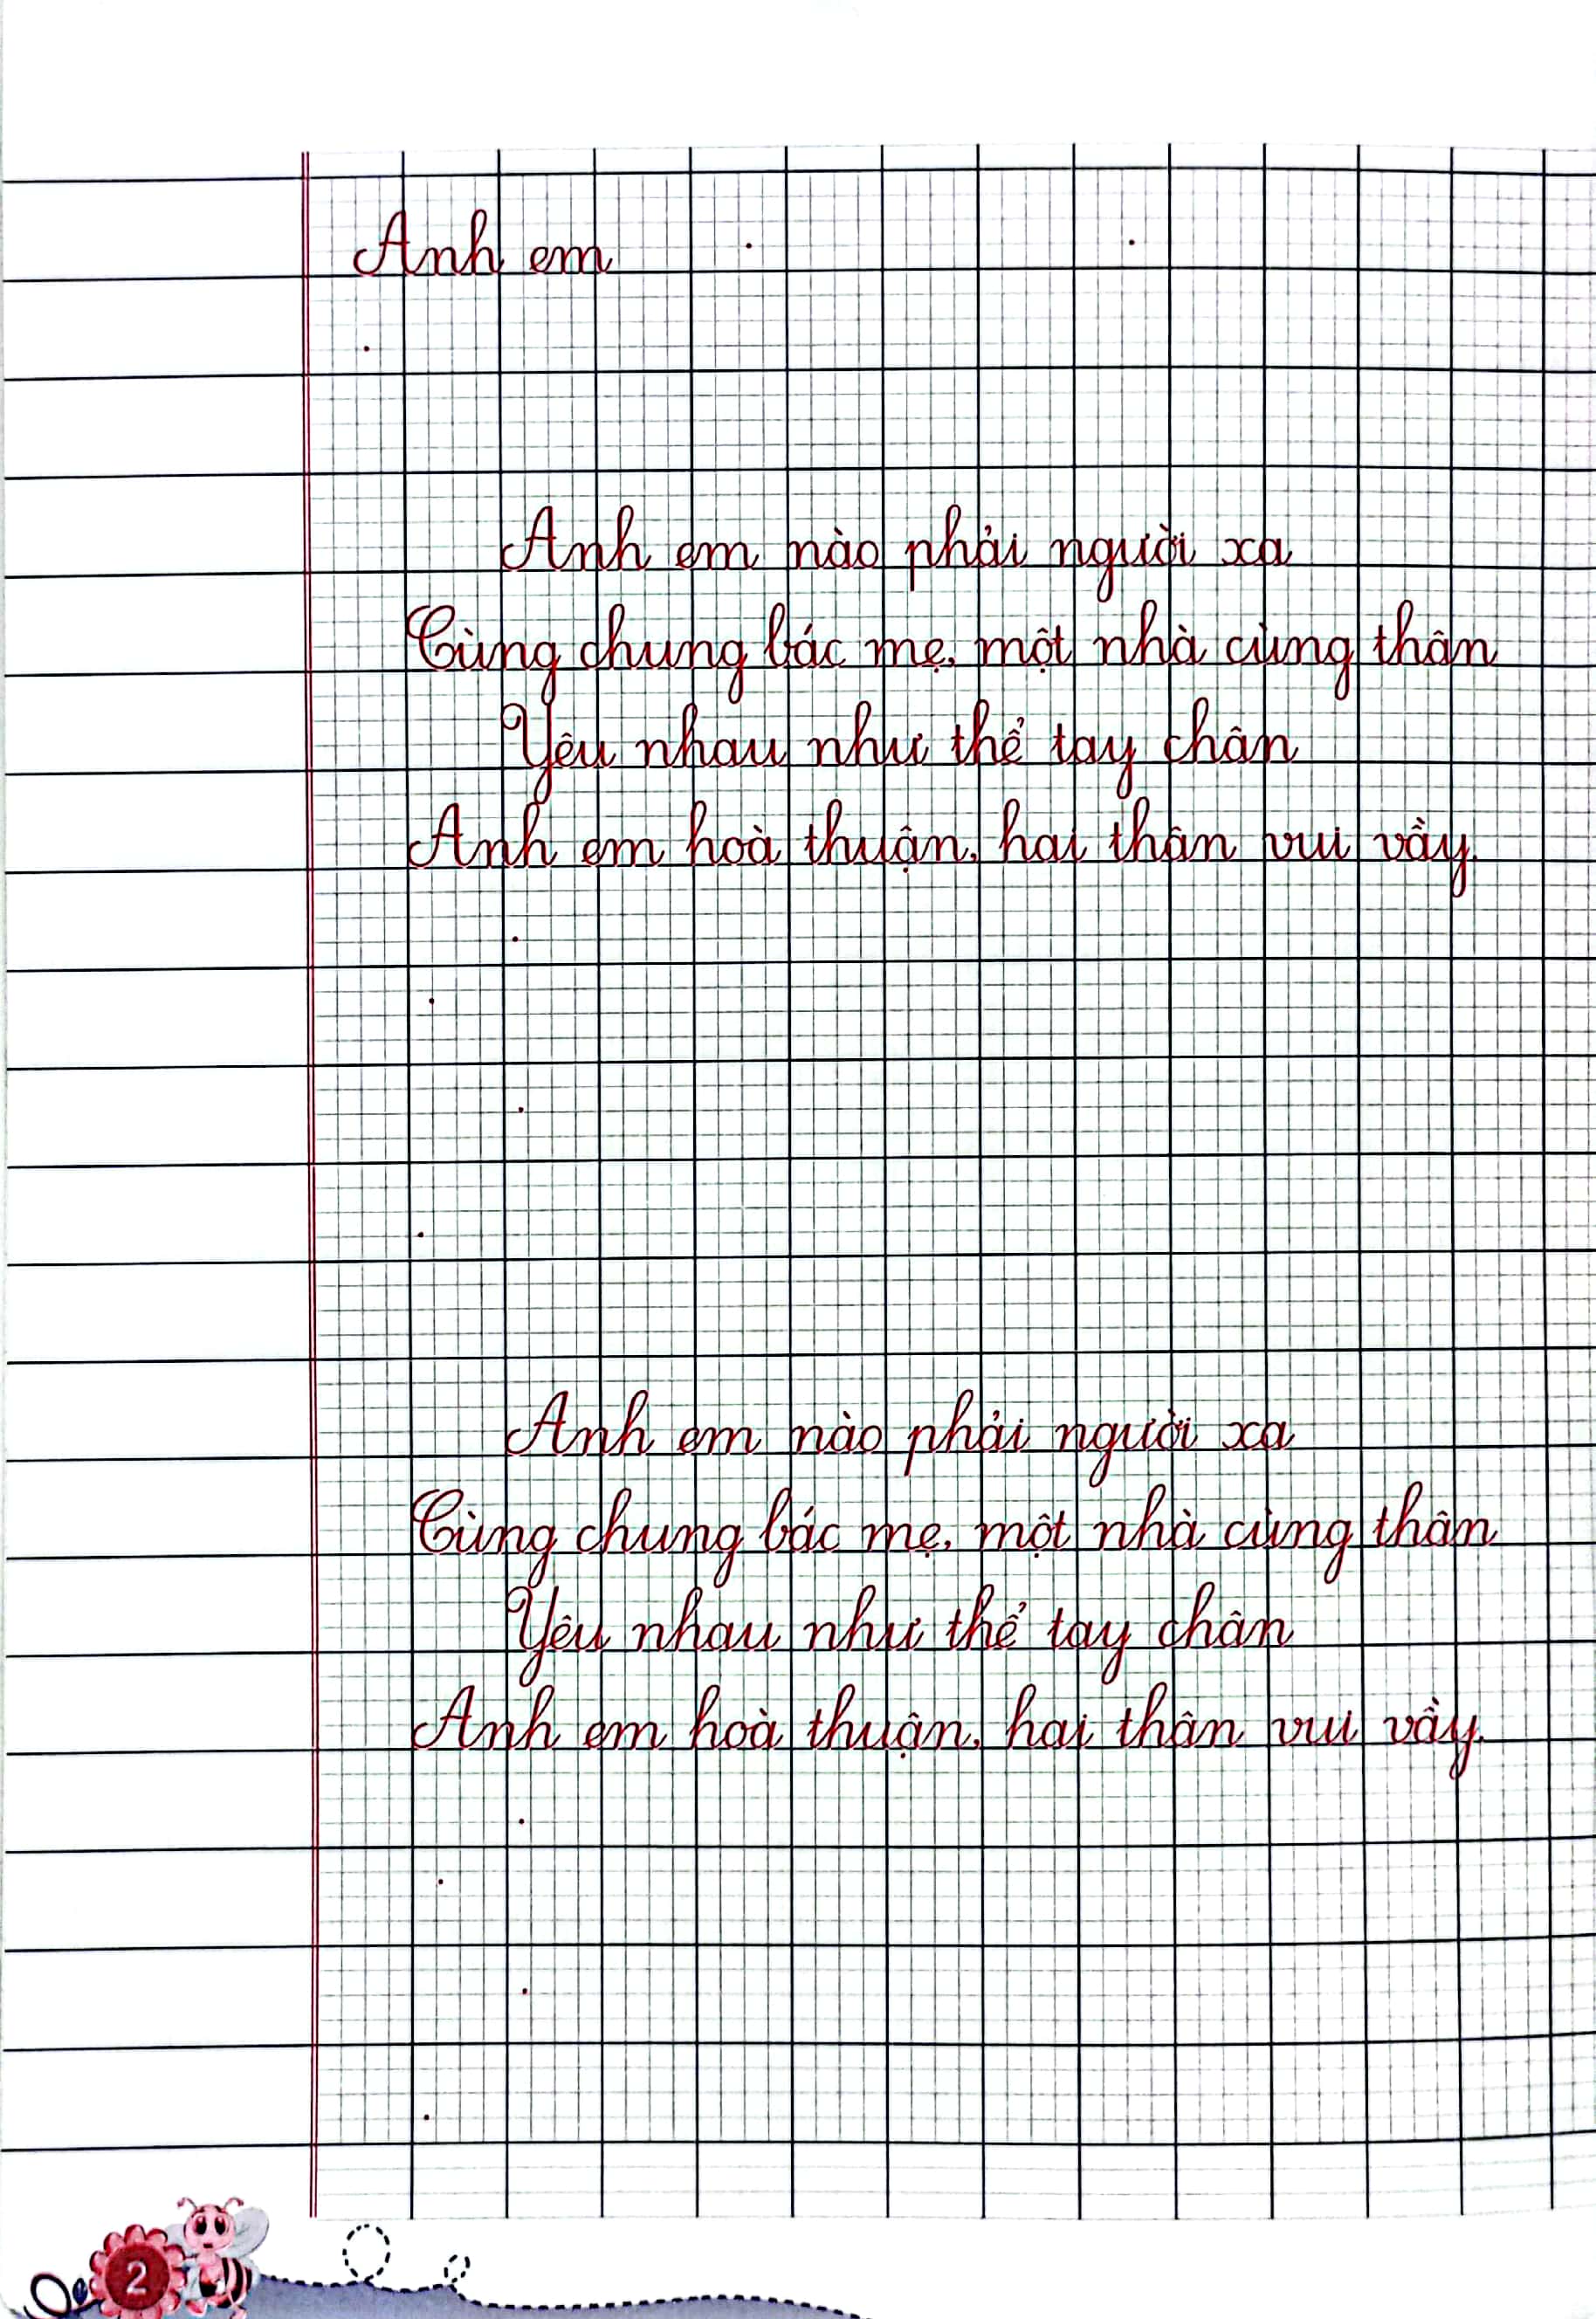 Anh em
Anh em nào phải người xa
Cùng chung bác mẹ, một nhà cùng thân
Yêu nhau như thể tay chân
Anh em hoà thuận, hai thân vui vầy.
Anh em nào phải người xa
Cùng chung bác mẹ, một nhà cùng thân
Yêu nhau như thể tay chân
Anh em hoà thuận, hai thân vui vầy.
2